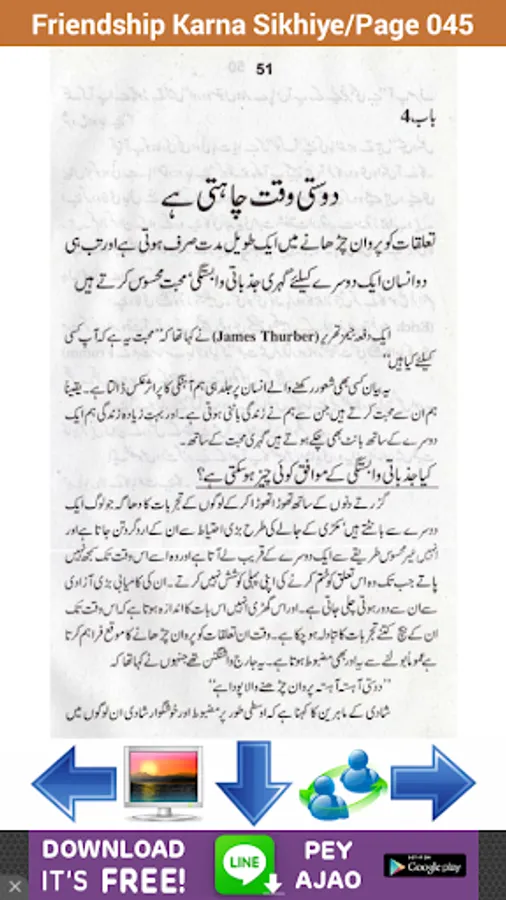 Friendship Karna Sikhiye/Page 045
51
باب4
دوستی وقت چاہتی ہے
تعلقات کو پروان چڑھانے میں ایک طویل مدت صرف ہوتی ہے اور تب ہی
دو انسان ایک دوسرے کیلئے گہری جذباتی وابستگی' محبت محسوس کرتے ہیں
ایک دفعہ جیمز تھربر (James Thurber) نے کہا تھا کہ "محبت یہ ہے کہ آپ کسی
کیلئے کیا ہیں"
یہ بیان کسی بھی شعور رکھنے والے انسان پر جلد ہی ہم آہنگی کا پر اثر عکس ڈالتا ہے۔ یقیناً
ہم ان سے محبت کرتے ہیں جن سے ہم نے زندگی بانٹی ہوتی ہے۔ اور بہت زیادہ زندگی ہم ایک
دوسرے کے ساتھ بانٹ بھی چکے ہوتے ہیں گہری محبت کے ساتھ۔
کیا جذباتی وابستگی کے موافق کوئی چیز ہو سکتی ہے؟
گزرتے دنوں کے ساتھ تھوڑا تھوڑا کر کے لوگوں کے تجربات کا دھاگہ جو لوگ ایک
دوسرے سے بانٹتے ہیں' مکڑی کے جالے کی طرح بڑی احتیاط سے ان کے اردگرد تن جاتا ہے اور
انہیں غیر محسوس طریقے سے ایک دوسرے کے قریب لے آتا ہے اور وہ اسے اس وقت تک سمجھ نہیں
پاتے جب تک وہ اس تعلق کو ختم کرنے کی اپنی پہلی کوشش نہیں کرتے۔ ان کی کامیابی بڑی آزادی
سے ان سے دور ہوتی چلی جاتی ہے۔ اور اس گھڑی انہیں اس بات کا اندازہ ہوتا ہے کہ اس وقت تک
ان کے بیچ کتنے تجربات کا تبادلہ ہو چکا ہے۔ وقت ان تعلقات کو پروان چڑھانے کا موقع فراہم کرتا
ہے عموماً بولنے سے یہ اور بھی مضبوط ہوتا ہے۔ یہ جارج واشنگٹن تھے جنہوں نے کہا تھا کہ
"دوستی آہستہ آہستہ پروان چڑھنے والا پودا ہے"
شادی کے ماہرین کا کہنا ہے کہ اوسطی طور پر مضبوط اور خوشگوار شادی ان لوگوں میں
DOWNLOAD
IT'S FREE!
LINE
PEY
AJAO
Google play